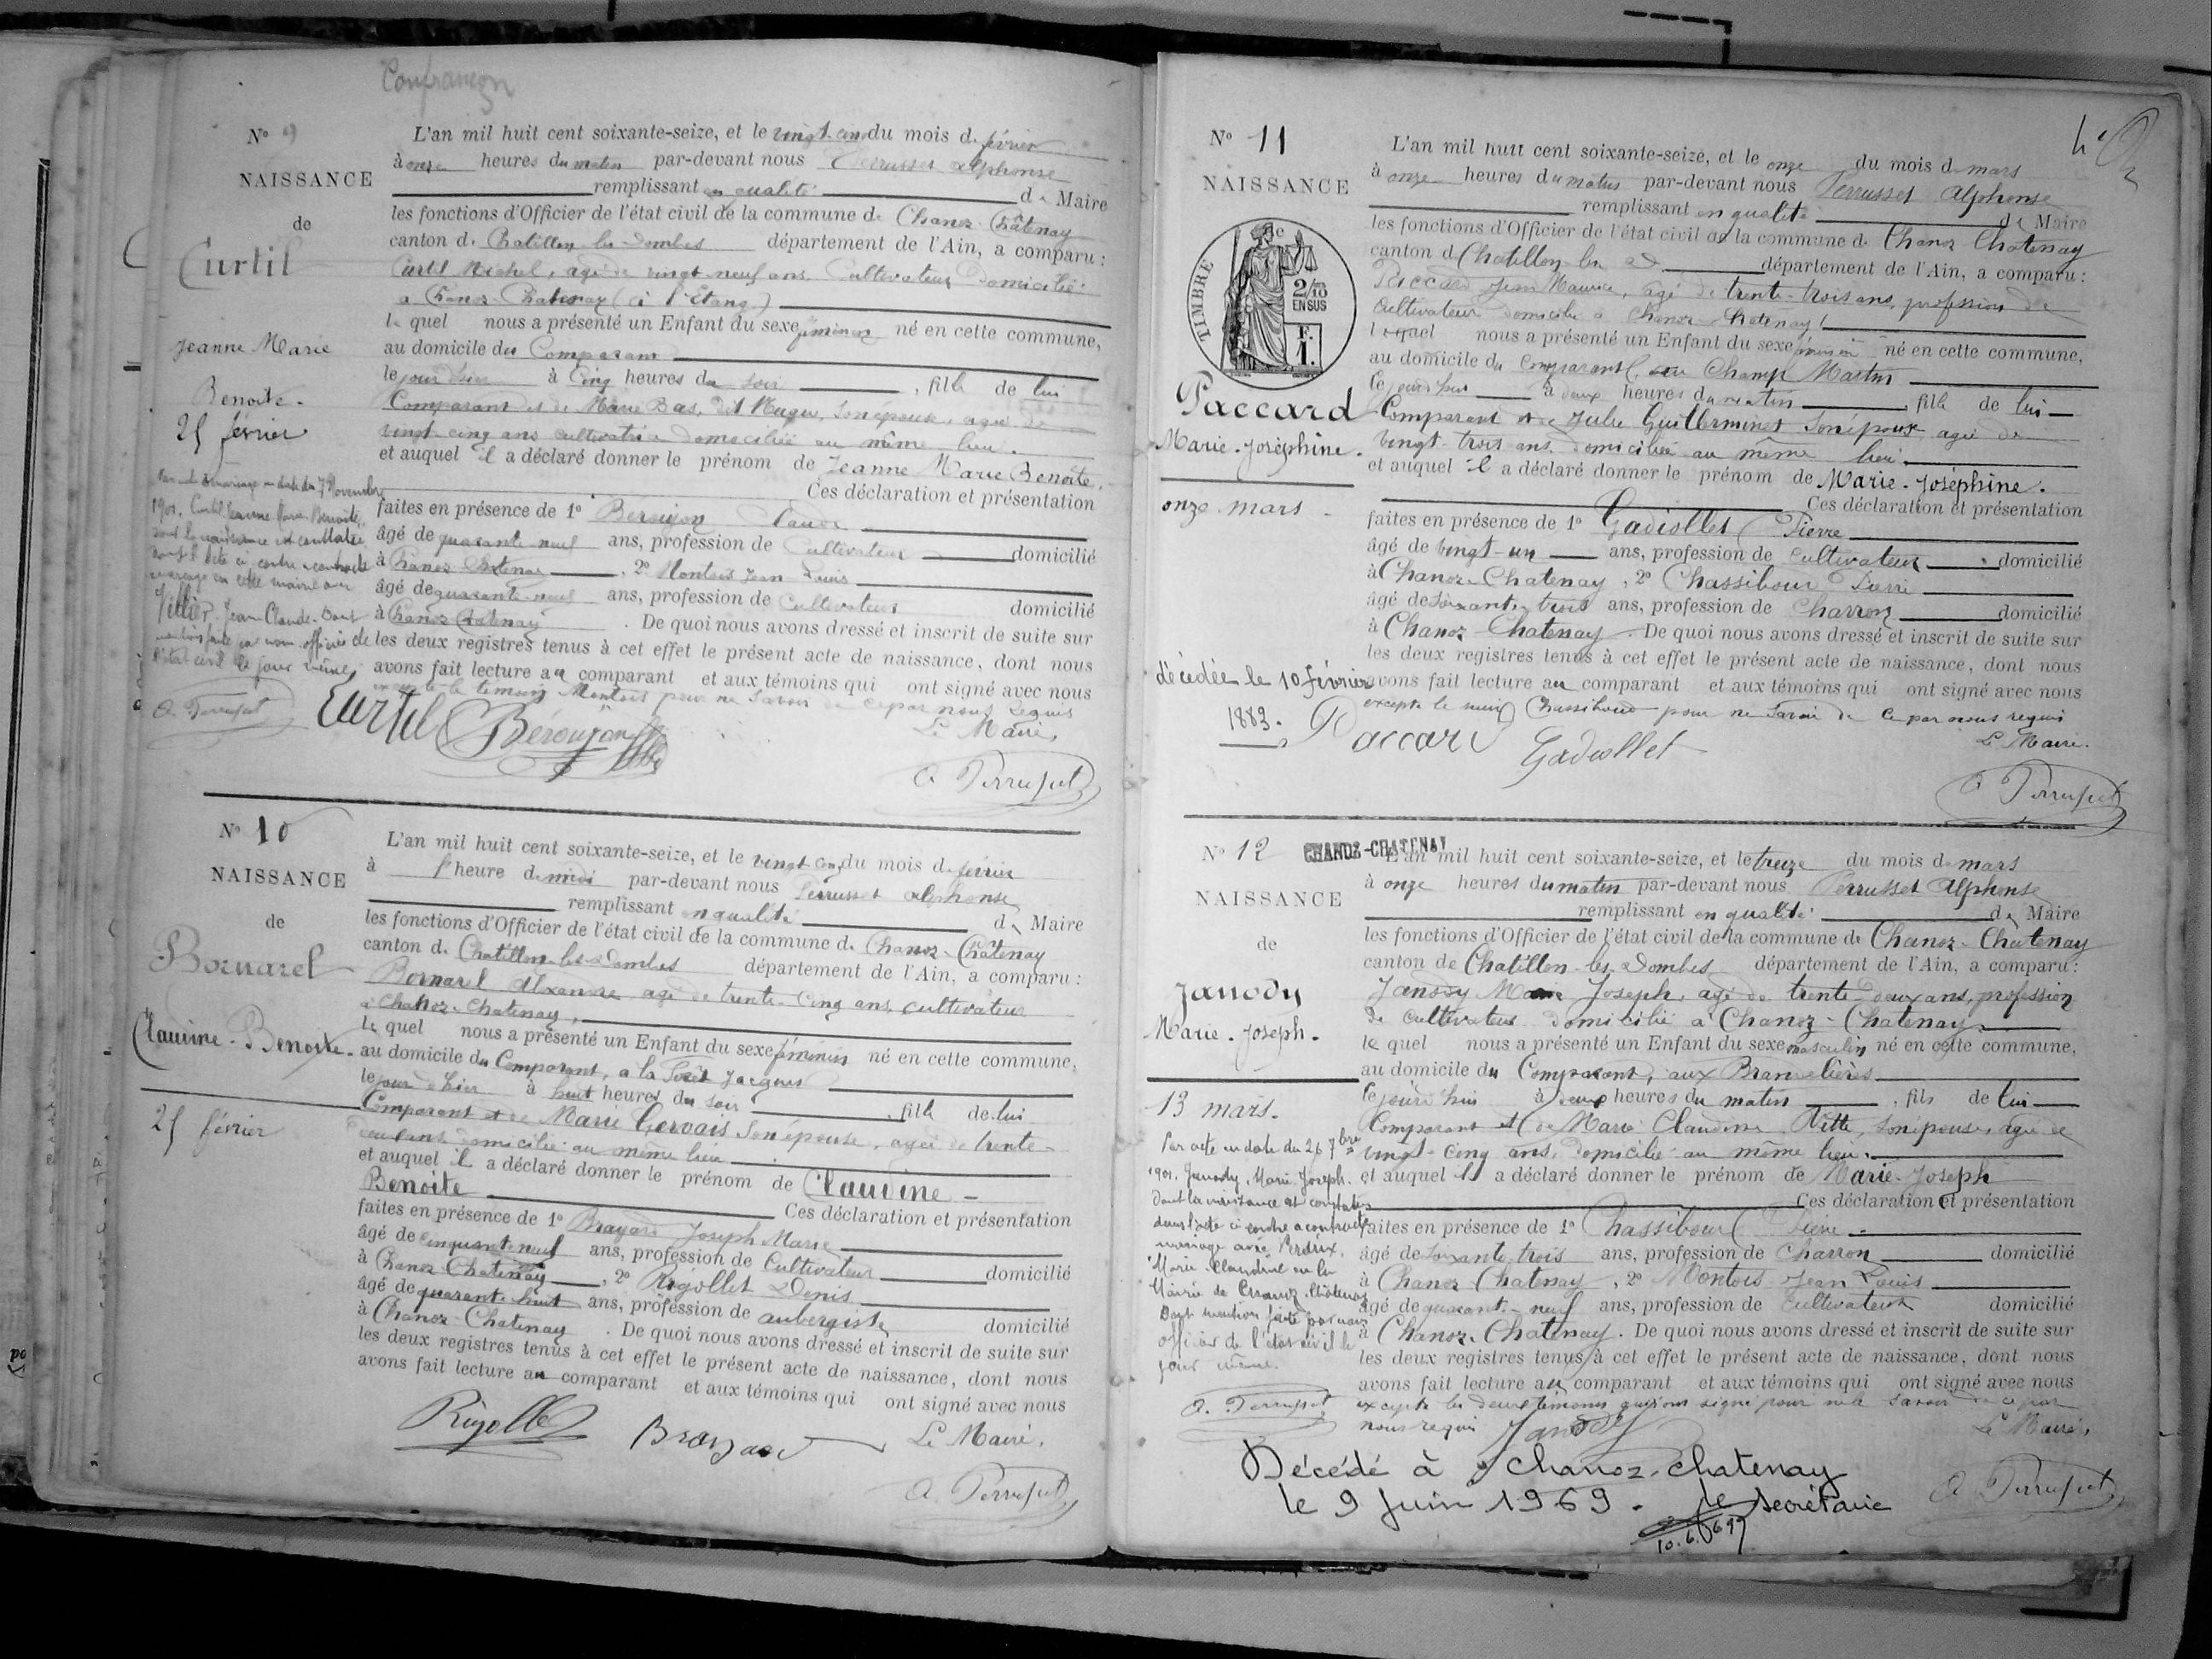 Confrançon
N° 9
NAISSANCE
de
Curtil
Jeanne Marie
Benoite.
25 février
L'an mil huit cent soixante-seize, et le vingt-cinq du mois d. février
à onze heures du matin par-devant nous Perrusset Alphonse
remplissant en qualité d. Maire
les fonctions d'Officier de l'état civil de la commune d. Chanoz-Châtenay
canton d. Chatillon les Dombes département de l'Ain, a comparu :
Curtil Michel, agé de vingt neuf ans Cultivateur domicilié
a Chanoz-Chatenay (à l'Etang)
le quel nous a présenté un Enfant du sexe féminin né en cette commune,
au domicile du Comparant
le jour d'hier à Cinq heures du soir , fille de lui
Comparant et de Marie Bas, dit Nugue, son épouse, agée de
vingt-cinq ans cultivatrice domiciliée au même lieu.
et auquel il a déclaré donner le prénom de Jeanne Marie Benoite.
Ces déclaration et présentation
faites en présence de 1° Beroujon
âgé de quarante neuf ans, profession de Cultivateur domicilié
à Chanoz Chatenay , 2° Montois Jean Louis
âgé de quarante-neuf ans, profession de Cultivateur domicilié
à Chanoz Chatenay . De quoi nous avons dressé et inscrit de suite sur
les deux registres tenus à cet effet le présent acte de naissance, dont nous
avons fait lecture au comparant et aux témoins qui ont signé avec nous
excepté le temoin Montois pour ne savoir de ce par nous requis
Le Maire,
Curtil Béroujon
A Perrusset
mariage en date du 7 Novembre
1901, Curtil Jeanne Marie Benoite,
dont la naissance est constatée
dont l'acte ci contre a contracté
mariage en cette mairie avec
Jean Claude. Dont
mention faite par nous officier de
l'état civil le jour même,
A. Perrusset
N° 10
NAISSANCE
de
Bornarel
Claudine-Benoite.
25 février
L'an mil huit cent soixante-seize, et le vingt cinq du mois d. février
à l'heure de midi par-devant nous Perrusset Alphonse
remplissant en qualité d. Maire
les fonctions d'Officier de l'état civil de la commune d. Chanoz-Châtenay
canton d. Chatillon-les-Dombes département de l'Ain, a comparu :
Bornarel Alexandre agé de trente-Cinq ans, cultivateur
a Chanoz-Chatenay,
le quel nous a présenté un Enfant du sexe féminin né en cette commune,
au domicile du Comparant, a la Forêt Jacques
le jour d'hier à huit heures du soir , fille de lui
Comparant et de Marie Gervais Son épouse, agée de trente-
domiciliée au même lieu
et auquel il a déclaré donner le prénom de Claudine -
Benoite
Ces déclaration et présentation
faites en présence de 1° Brayard Joseph Marie
âgé de cinquante neuf ans, profession de Cultivateur domicilié
à Chanoz Chatenay , 2° Rigollet Denis
âgé de quarante huit ans, profession de aubergiste domicilié
à Chanoz-Chatenay . De quoi nous avons dressé et inscrit de suite sur
les deux registres tenus à cet effet le présent acte de naissance, dont nous
avons fait lecture au comparant et aux témoins qui ont signé avec nous
Le Maire,
Rigollet Brayard
A. Perrusset
N° 11
NAISSANCE
TIMBRE
2/10
EN SUS
F.
1.
Paccard
Marie-Joséphine.
onze mars -
décédée le 10 février
1883.
L'an mil huit cent soixante-seize, et le onze du mois d. mars
à onze heures du matin par-devant nous Perrusset Alphonse
remplissant en qualité de Maire
les fonctions d'Officier de l'état civil de la commune d. Chanoz Chatenay
canton d. Chatillon les D. département de l'Ain, a comparu :
Paccard Jean Maurice, agé de trente-trois ans, profession de
Cultivateur domicilié a Chanoz-Chatenay
lequel nous a présenté un Enfant du sexe féminin né en cette commune,
au domicile du comparant, au Champ Martin
le jourd'hui à deux heures du matin , fille de lui
Comparant et de Julie Guillerminet Son épouse, agée de
vingt-trois ans domiciliée au même lieu.
et auquel il a déclaré donner le prénom de Marie-Joséphine.
Ces déclaration et présentation
faites en présence de 1° Gadiollet Pierre
âgé de vingt-un ans, profession de Cultivateur domicilié
à Chanoz-Chatenay , 2° Chassibour Pierre
âgé de soixante-trois ans, profession de Charron domicilié
à Chanoz-Chatenay . De quoi nous avons dressé et inscrit de suite sur
les deux registres tenus à cet effet le présent acte de naissance, dont nous
avons fait lecture au comparant et aux témoins qui ont signé avec nous
excepté le Chassibour pour ne savoir de ce par nous requis
Le Maire.
Paccard Gadiollet
A Perrusset
N° 12
CHANOZ-CHATENAY
NAISSANCE
de
Janody
Marie-Joseph.
13 mars.
L'an mil huit cent soixante-seize, et le treize du mois d. mars
à onze heures du matin par-devant nous Perrusset Alphonse
remplissant en qualité de Maire
les fonctions d'Officier de l'état civil de la commune de Chanoz-Châtenay
canton de Chatillon-les-Dombes département de l'Ain, a comparu :
Janody Marie Joseph, agé de trente-deux ans, profession
de cultivateur domicilié a Chanoz-Chatenay
le quel nous a présenté un Enfant du sexe masculin né en cette commune,
au domicile du Comparant, aux
le jourd'hui à deux heures du matin , fils de lui
Comparant et de Marie Claudine Vitte, son épouse, agée de
vingt-cinq ans, domiciliée au même lieu.
et auquel il a déclaré donner le prénom de Marie-Joseph
Ces déclaration et présentation
faites en présence de 1° Chassibour Pierre
âgé de soixante trois ans, profession de Charron domicilié
à Chanoz Chatenay , 2° Montois Jean Louis
âgé de quarante-neuf ans, profession de Cultivateur domicilié
à Chanoz-Chatenay . De quoi nous avons dressé et inscrit de suite sur
les deux registres tenus à cet effet le présent acte de naissance, dont nous
avons fait lecture au comparant et aux témoins qui ont signé avec nous
excepté les deux témoins
nous requis Janody
Le Maire,
A Perrusset
Par acte en date du 26 7bre
1901, Janody, Marie Joseph,
dont la naissance est constatée
dans l'acte ci contre a contracté
mariage avec Perdrix,
Marie-Claudine en la
Mairie de Chanoz-Châtenay
Dont mention faite par nous
officier de l'état civil le
jour même.
A. Perrusset
Décédé à Chanoz-Chatenay
le 9 Juin 1969. le secrétaire
10.6.69